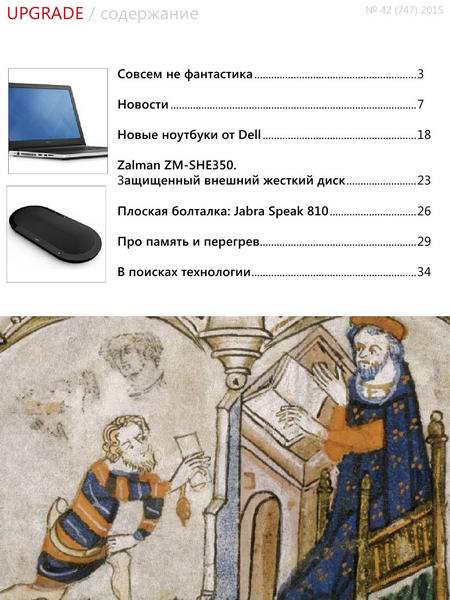 UPGRADE / содержание
№ 42 (747) 2015
Совсем не фантастика 3
Новости 7
Новые ноутбуки от Dell 18
Zalman ZM-SHE350.
Защищенный внешний жесткий диск 23
Плоская болталка: Jabra Speak 810 26
Про память и перегрев 29
В поисках технологии 34